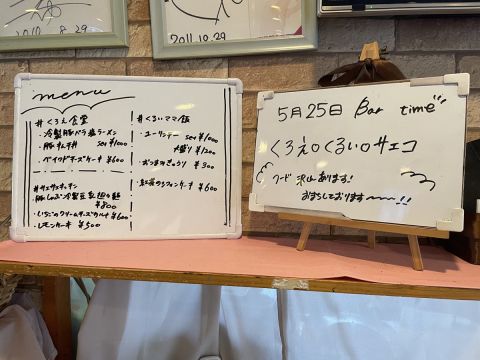 2010.8.29
2011.10.29
menu
#くろえ食堂
・冷製豚バラ塩ラーメン
・豚キムチ丼 set ¥1000
・ベイクドチーズケーキ ¥600
#サエサエキッチン
豚しゃぶ冷製豆乳担々麺
¥800
・いちごのクリームチーズタルト ¥600
・レモンケーキ ¥500
#くるいママ飯
・ユーリンチー set ¥1000
大盛り ¥1200
・おつまみきゅうり ¥300
・紅茶シフォンケーキ ¥600
5月25日 Bar time
くろえ○くるい○サエコ
フード沢山あります!
お待ちしております〜!!